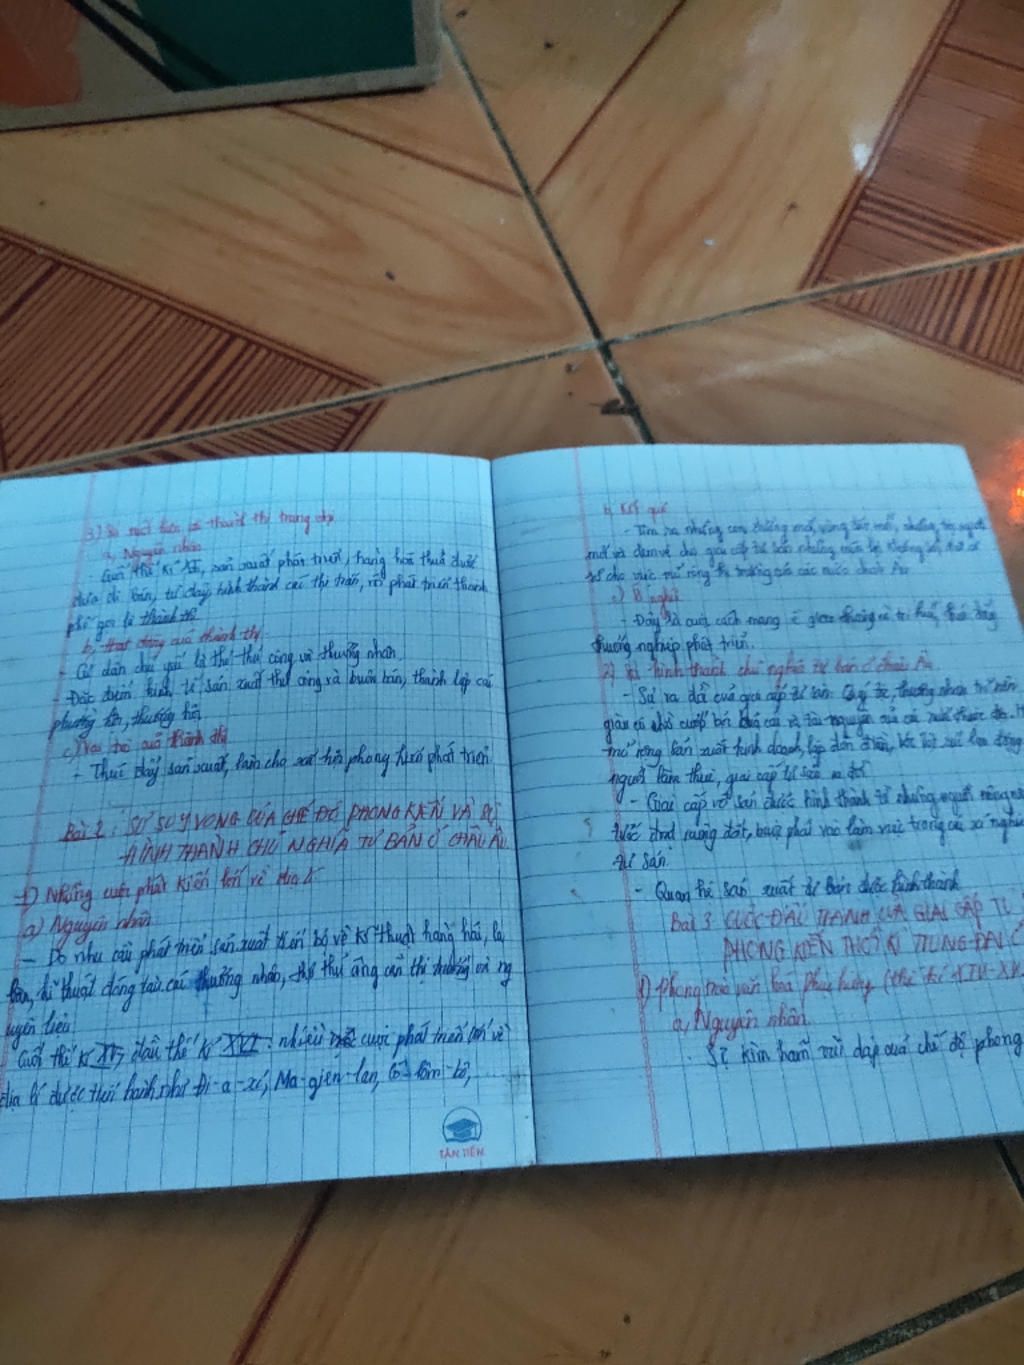 3) Sự xuất hiện thành thị trung đại
a, Nguyên nhân
- Cuối thế kỉ XI, sản xuất phát triển, hàng hóa thừa được
đưa đi bán, từ đây, hình thành các thị trấn, rồi phát triển thành
phố gọi là thành thị
b, Hoạt động của thành thị
- Cư dân chủ yếu là thợ thủ công và thương nhân
- Đặc điểm kinh tế sản xuất thủ công và buôn bán, thành lập các
phường hội, thương hội
c) Vai trò của thành thị
- Thúc đẩy sản xuất, làm cho xã hội phong kiến phát triển
Bài 2: SỰ SUY VONG CỦA CHẾ ĐỘ PHONG KIẾN VÀ SỰ
HÌNH THÀNH CHỦ NGHĨA TƯ BẢN Ở CHÂU ÂU
1) Những cuộc phát kiến lớn về địa lí
a) Nguyên nhân
- Do nhu cầu phát triển sản xuất tiến bộ về kĩ thuật hàng hải, la
bàn, kĩ thuật đóng tàu, các thương nhân, thợ thủ công cần thị trường và ng
uyên liệu
Cuối thế kỉ XV, đầu thế kỉ XVI: nhiều cuộc phát kiến lớn về
địa lí được tiến hành như Đi-a-xơ, Ma-gien-lan, Cô-lôm-bô,...
TÂN TIẾN
b, Kết quả
- Tìm ra những con đường mới, vùng đất mới, những tộc người
mới và đem về cho giai cấp tư sản những món lợi khổng lồ,
cho việc mở rộng thị trường các nước châu Âu
c) Ý nghĩa
- Đây là cuộc cách mạng về giao thông và tri thức, thúc đẩy
thương nghiệp phát triển.
2) Sự hình thành chủ nghĩa tư bản ở châu Âu
- Sự ra đời của giai cấp tư sản: Quý tộc, thương nhân trở nên
giàu có nhờ cướp bóc của cải và tài nguyên của các nước thuộc địa. H
mở rộng sản xuất kinh doanh, lập đồn điền, bóc lột sức lao động
người làm thuê, giai cấp tư sản ra đời
- Giai cấp vô sản được hình thành từ những người nông nô
tước đoạt ruộng đất, buộc phải vào làm việc trong các xí nghiệ
tư sản
- Quan hệ sản xuất tư bản được hình thành
Bài 3 CUỘC ĐẤU TRANH CỦA GIAI CẤP TƯ
PHONG KIẾN THỜI KÌ TRUNG ĐẠI Ở
1) Phong trào văn hoá Phục hưng (thế kỉ XIV-XV
a, Nguyên nhân
- Sự kìm hãm vùi dập của chế độ phong